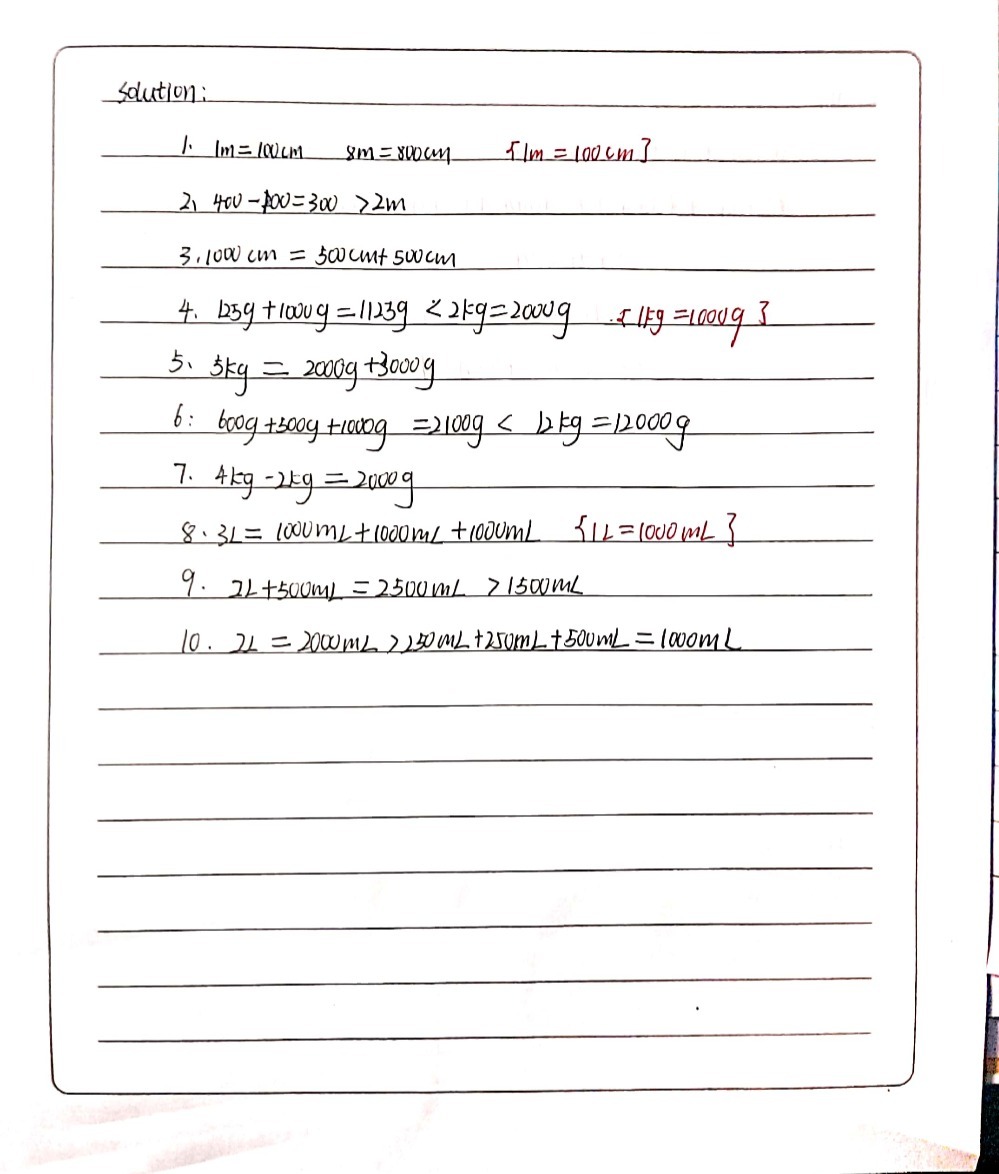 Solution:
1. 1m=100cm 8m=800cm {1m=100cm}
2、400-100=300 >2m
3. 1000cm = 500cm+500cm
4. 123g+1000g=1123g <2kg=2000g {1kg=1000g}
5、5kg = 2000g+3000g
6: 600g+500g+1000g =2100g < 12kg=12000g
7. 4kg-2kg=2000g
8. 3L= 1000mL+1000mL+1000mL {1L=1000mL}
9. 2L+500mL=2500mL >1500mL
10. 2L = 2000mL >250mL+250mL+500mL=1000mL